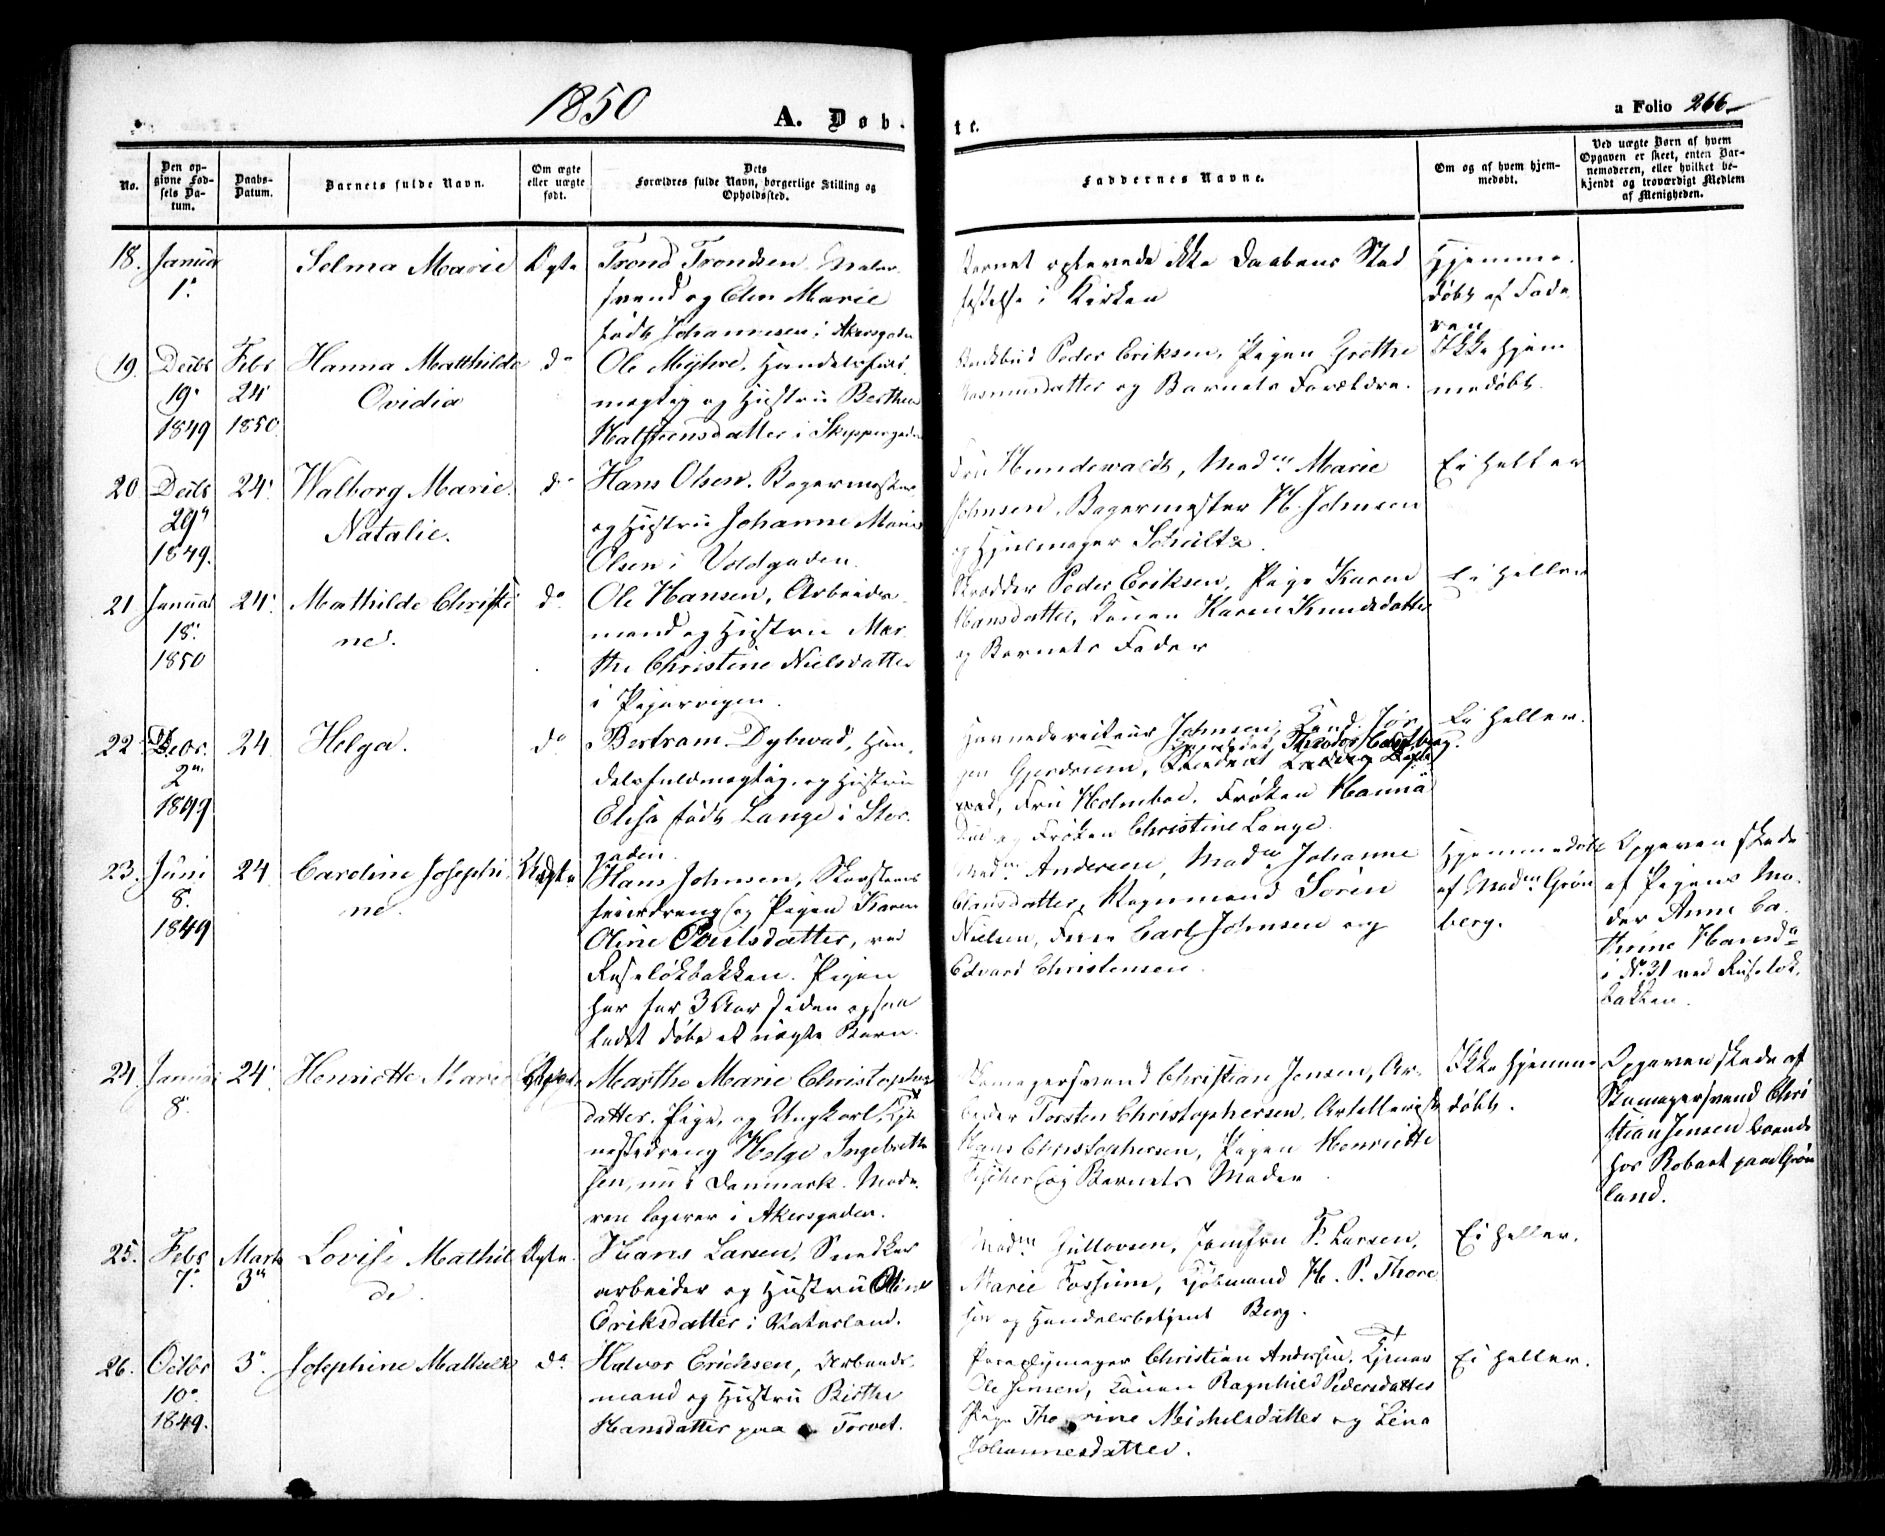 1850
A. Døb-
te.
a Folio 266
No.
Den op-
givne Fød-
sels Da-
tum.
Daabs-
Datum.
Barnets fulde Navn.
Om ægte
eller uægte
født.
Dets
Forældres fulde Navn, borgerlige Stilling og
Opholdssted.
Faddernes Navne.
Om og af hvem hjem-
medøbt.
Ved uægte Børn af hvem
Opgaven er skeet, enten Bar-
nemoderen, eller hvilket be-
kjendt og troværdigt Medlem
af Menigheden.
18. Januar
1.
Selma Marie
Ægte
Trond Trondsen, Maler-
svend og Elen Marie
født Johannesen i Akersgaden
Barnet oplevede ikke Daabens Stad
fæstelse i Kirken
Hjemme-
døbt af Fade
ren
19. Decbr
19.
1849
Febr
24
1850.
Hanna Matthilde
Ovidia
do
Ole Myhre, Handelsfuld-
mægtig og Hustru Berthea
Halsteensdatter i Skippergaden
Peder Eriksen, Pigen Grethe
Rasmusdatter og Barnets Forældre.
Ikke hjem
medøbt.
20 Decbr
29
1849.
24.
Walborg Marie
Natalie.
do
Hans Olsen, Bagermester
og Hustru Johanne Marie
Olsen i Voldgaden.
Fru Hundewaldt, Madm Marie
Johnsen, Bagermester H. Johnsen
og Hjulmager Schultz.
Ei heller
21 Januar
18.
1850
24.
Mathilde Christi
ne.
do
Ole Hansen, Arbeids-
mand og Hustru Mar-
the Christine Nielsdatter
i Pipervigen.
Peder Eriksen, Pige Karen
Hansdatter, Konen Karen Knudsdatter
og Barnets Fader
Ei heller
22 Decbr.
2
1849
24
Helga.
do
Bertram Dybwad, Han-
delsfuldmægtig, og Hustru
Elisa født Lange i Stor-
gaden.
Johnsen, Cand. Jør-
gen Gjerdrum, Student Ludvig Dyb-
wad, Fru Holmboe, Frøken Hanna
og Frøken Christine Lange.
Ei heller.
23. Juni
8.
1849
24
Caroline Josephi-
ne.
Uægte
Hans Johnsen, Skorsteens
feierdreng og Pigen Karen
Oline Poulsdatter, ved
Ruseløkbakken. Pigen
har for 3 Aar siden ogsaa
ladet døbe et uægte Barn.
Madm Andersen, Madm Johanne
Clausdatter, Søren
Nielsen, Carl Johnsen og
Edvard Christensen.
Hjemmedøbt
af Madm Grøn
berg.
Opgaven skede
af Pigens Mo-
der Anne Ca-
thrine Hansd
i No 31 ved Ruseløk-
bakken.
24. Januar
8.
24.
Henriette Marie
Uægte
Marthe Marie Christophers
datter, Pige, og Ungkarl, Tje-
nestedreng Helge Ingebreth
sen, nu i Danmark. Mode-
ren logerer i Akersgaden.
Skomagersvend Christian Jensen, Ar-
beider Torsten Christophersen, Artillerist
Hans Christophersen, Pigen Henriette
Fischer og Barnets Moder
Ikke hjemme
døbt.
Opgaven skede af
Skomagersvend Chri
stian Jensen boende
hos Robart paa Grøn
land.
25. Febr
7.
Marts
3
Lovise Mathil
de.
Ægte.
Hans Larsen, Snedker
arbeider og Hustru Oline
Eriksdatter i Vaterland.
Madm Gullovsen, Jomfru F. Larsen,
Marie Fossum, Kjøbmand H. P. Thore
sen og Handelsbetjent Berg.
Ei heller.
26. Octbr
10.
1849.
3.
Josephine Mathilde
do
Halvor Erichsen, Arbeids-
mand og Hustru Birthe
Hansdatter paa Torvet.
Paraplymager Christian Andersen,
Ole Jensen, Konen Ragnhild Pedersdatter
Pige Thorine Michelsdatter og Lina
Johannesdatter.
Ei heller.